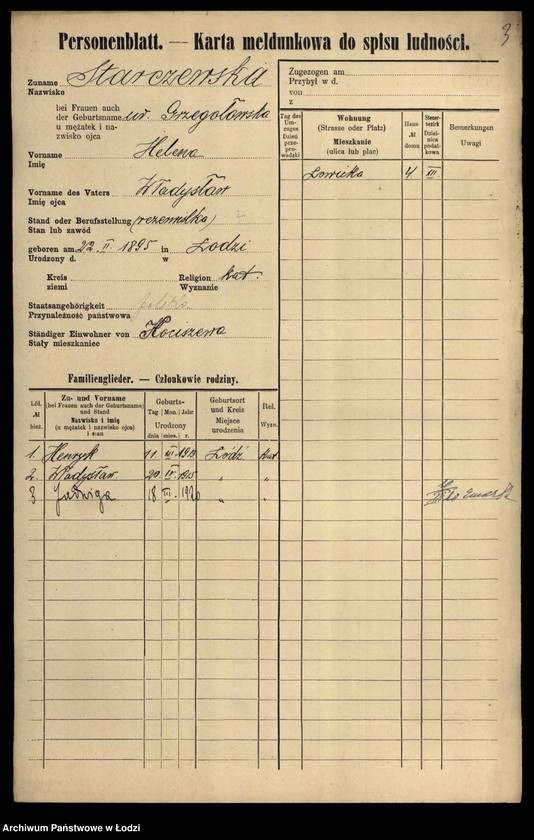 3
Personenblatt. — Karta meldunkowa do spisu ludności.
Zuname
Nazwisko
Starczewska
bei Frauen auch
der Geburtsname
u mężatek i na-
zwisko ojca
Vorname
Imię
Helena
Vorname des Vaters
Imię ojca
Władysław
Stand oder Berufsstellung
Stan lub zawód
geboren am 22. II. 1895 in Łodzi
Urodzony d. w
Kreis
ziemi
Religion
Wyznanie
kat.
Staatsangehörigkeit
Przynależność państwowa
polska
Ständiger Einwohner von
Stały mieszkaniec
Kociszewa
Familienglieder. — Członkowie rodziny.
Lfd.
№
bież.
Zu- und Vorname
(bei Frauen auch der Geburtsname)
und Stand
Nazwisko i imię
(u mężatek i nazwisko ojca)
i stan
Geburts-
Tag Mon. Jahr
Urodzony
dnia mies. r.
Geburtsort
und Kreis
Miejsce
urodzenia
Rel.
Wyzn.
1. Henryk 11 Łódź kat
2. Władysław 20 1915 " "
3 Jadwiga 18 III 1920 " "
Zugezogen am
Przybył w d.
von
z
Tag des
Um-
zuges
Dzień
prze-
prowadzki
Wohnung
(Strasse oder Platz)
Mieszkanie
(ulica lub plac)
Haus
№
domu
Steuer-
bezirk
Dziel-
nica
podat-
kowa
Bemerkungen
Uwagi
Łowicka 4 III
Archiwum Państwowe w Łodzi